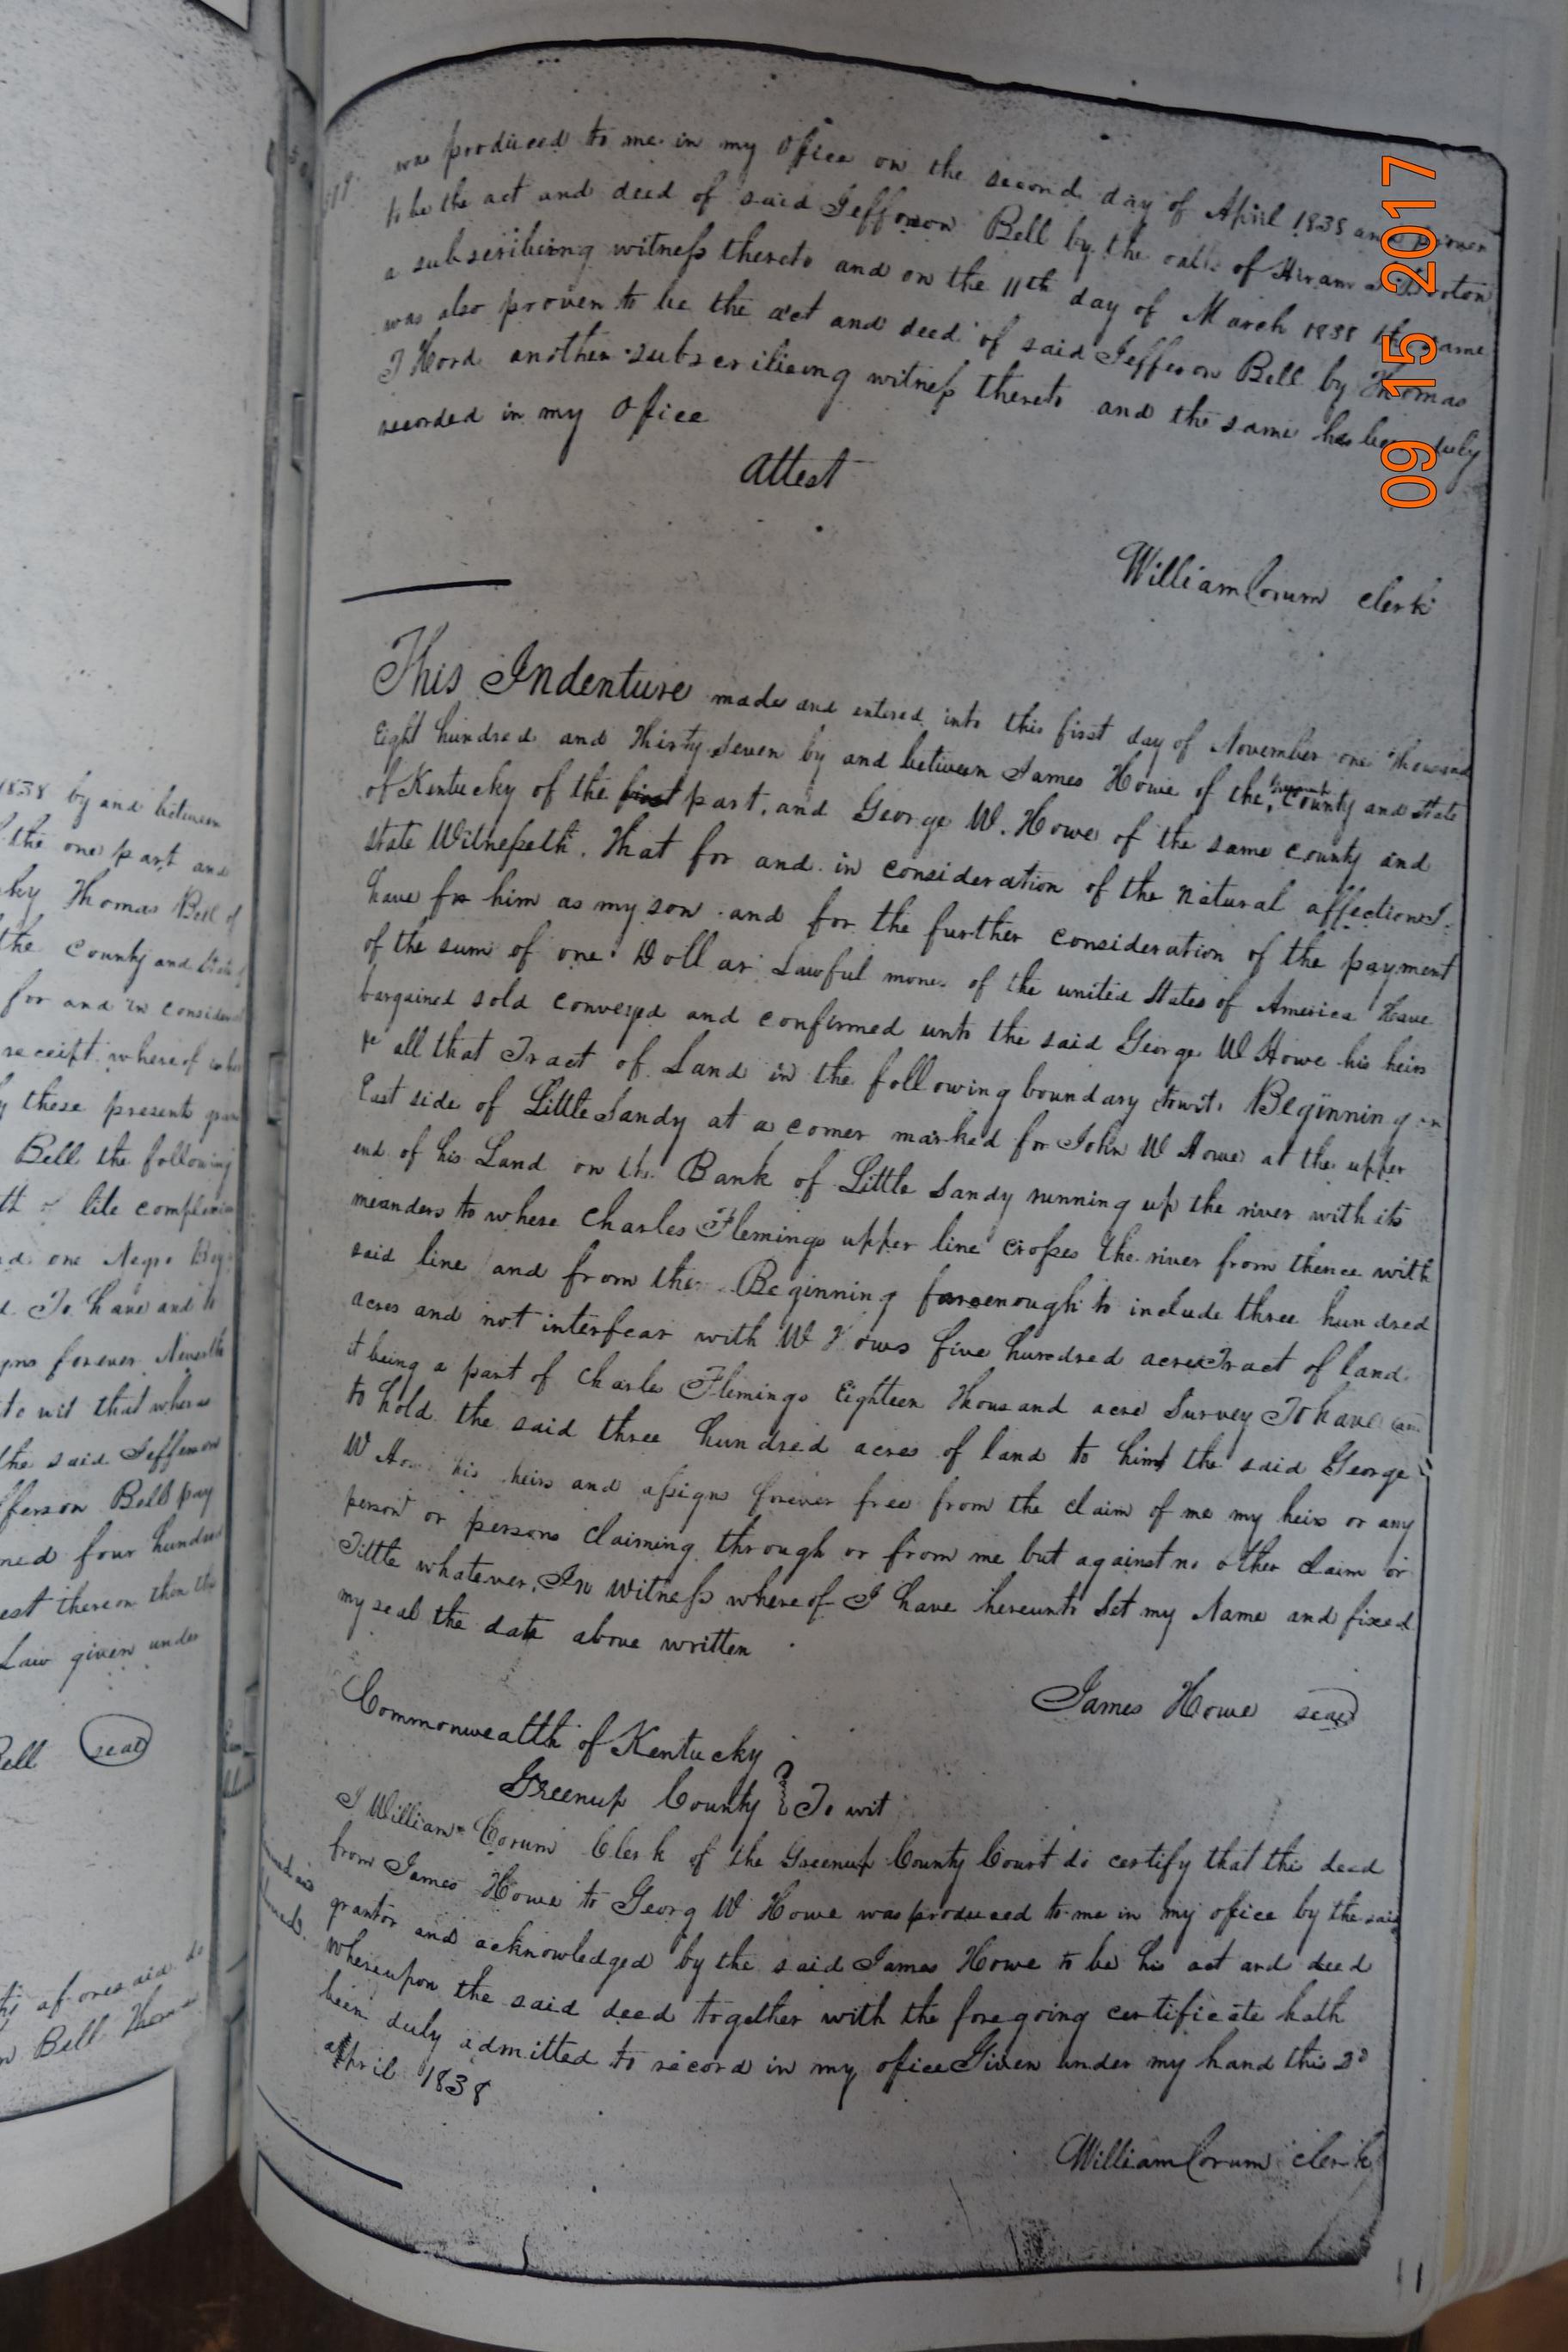 was produced to me in my Office on the second day of April 1838 and proven
to be the act and deed of said Jefferson Bell by the oath of Hiram
a subscribing witness thereto and on the 11th day of March 1838 the same
was also proven to be the act and deed of said Jefferson Bell by Thomas
T Hord another subscribing witness thereto and the same has been duly
recorded in my Office
Attest
William Corum Clerk
This Indenture made and entered into this first day of November one Thousand
Eight hundred and Thirty Seven by and between James Howe of the Greenup County and State
of Kentucky of the first part, and George W. Howe of the same county and
State Witnesseth. That for and in consideration of the natural affection I
have for him as my son and for the further consideration of the payment
of the sum of one Dollar Lawful money of the united States of America Have
bargained sold conveyed and confirmed unto the said George W Howe his heirs
&c all that Tract of Land in the following boundary towit, Beginning on
East side of Little Sandy at a corner marked for John W Howe at the upper
end of his Land on the Bank of Little Sandy running up the river with its
meanders to where Charles Flemings upper line crosses the river from thence with
said line and from the Beginning far enough to include three hundred
acres and not interfear with W Hows five hundred acre Tract of land
it being a part of Charles Flemings Eighteen Thousand acre Survey To have and
to hold the said three hundred acres of land to him the said George
W How his heirs and assigns forever free from the claim of me my heirs or any
person or persons claiming through or from me but against no other claim or
Tittle whatever, In Witness whereof I have hereunto Set my Name and fixed
my seal the date above written
James Howe seal
Commonwealth of Kentucky
Greenup County } To wit
I William Corum Clerk of the Greenup County Court do certify that this deed
from James Howe to Georg W Howe was produced to me in my office by the said
grantor and acknowledged by the said James Howe to be his act and deed
whereupon the said deed together with the foregoing certificate hath
been duly admitted to record in my office Given under my hand this 2d
April 1838
William Corum Clerk
11
1838 by and between
the one part and
ky Thomas Bell of
the County and State
for and in consider
receipt whereof
these present
Bell the following
one Negro Boy
To have and to
forever
to wit that whereas
the said Jefferson
fferson Bell pay
four hundred
est thereon then
Law given under
Bell seal
aforesaid do
Bell
09 15 2017